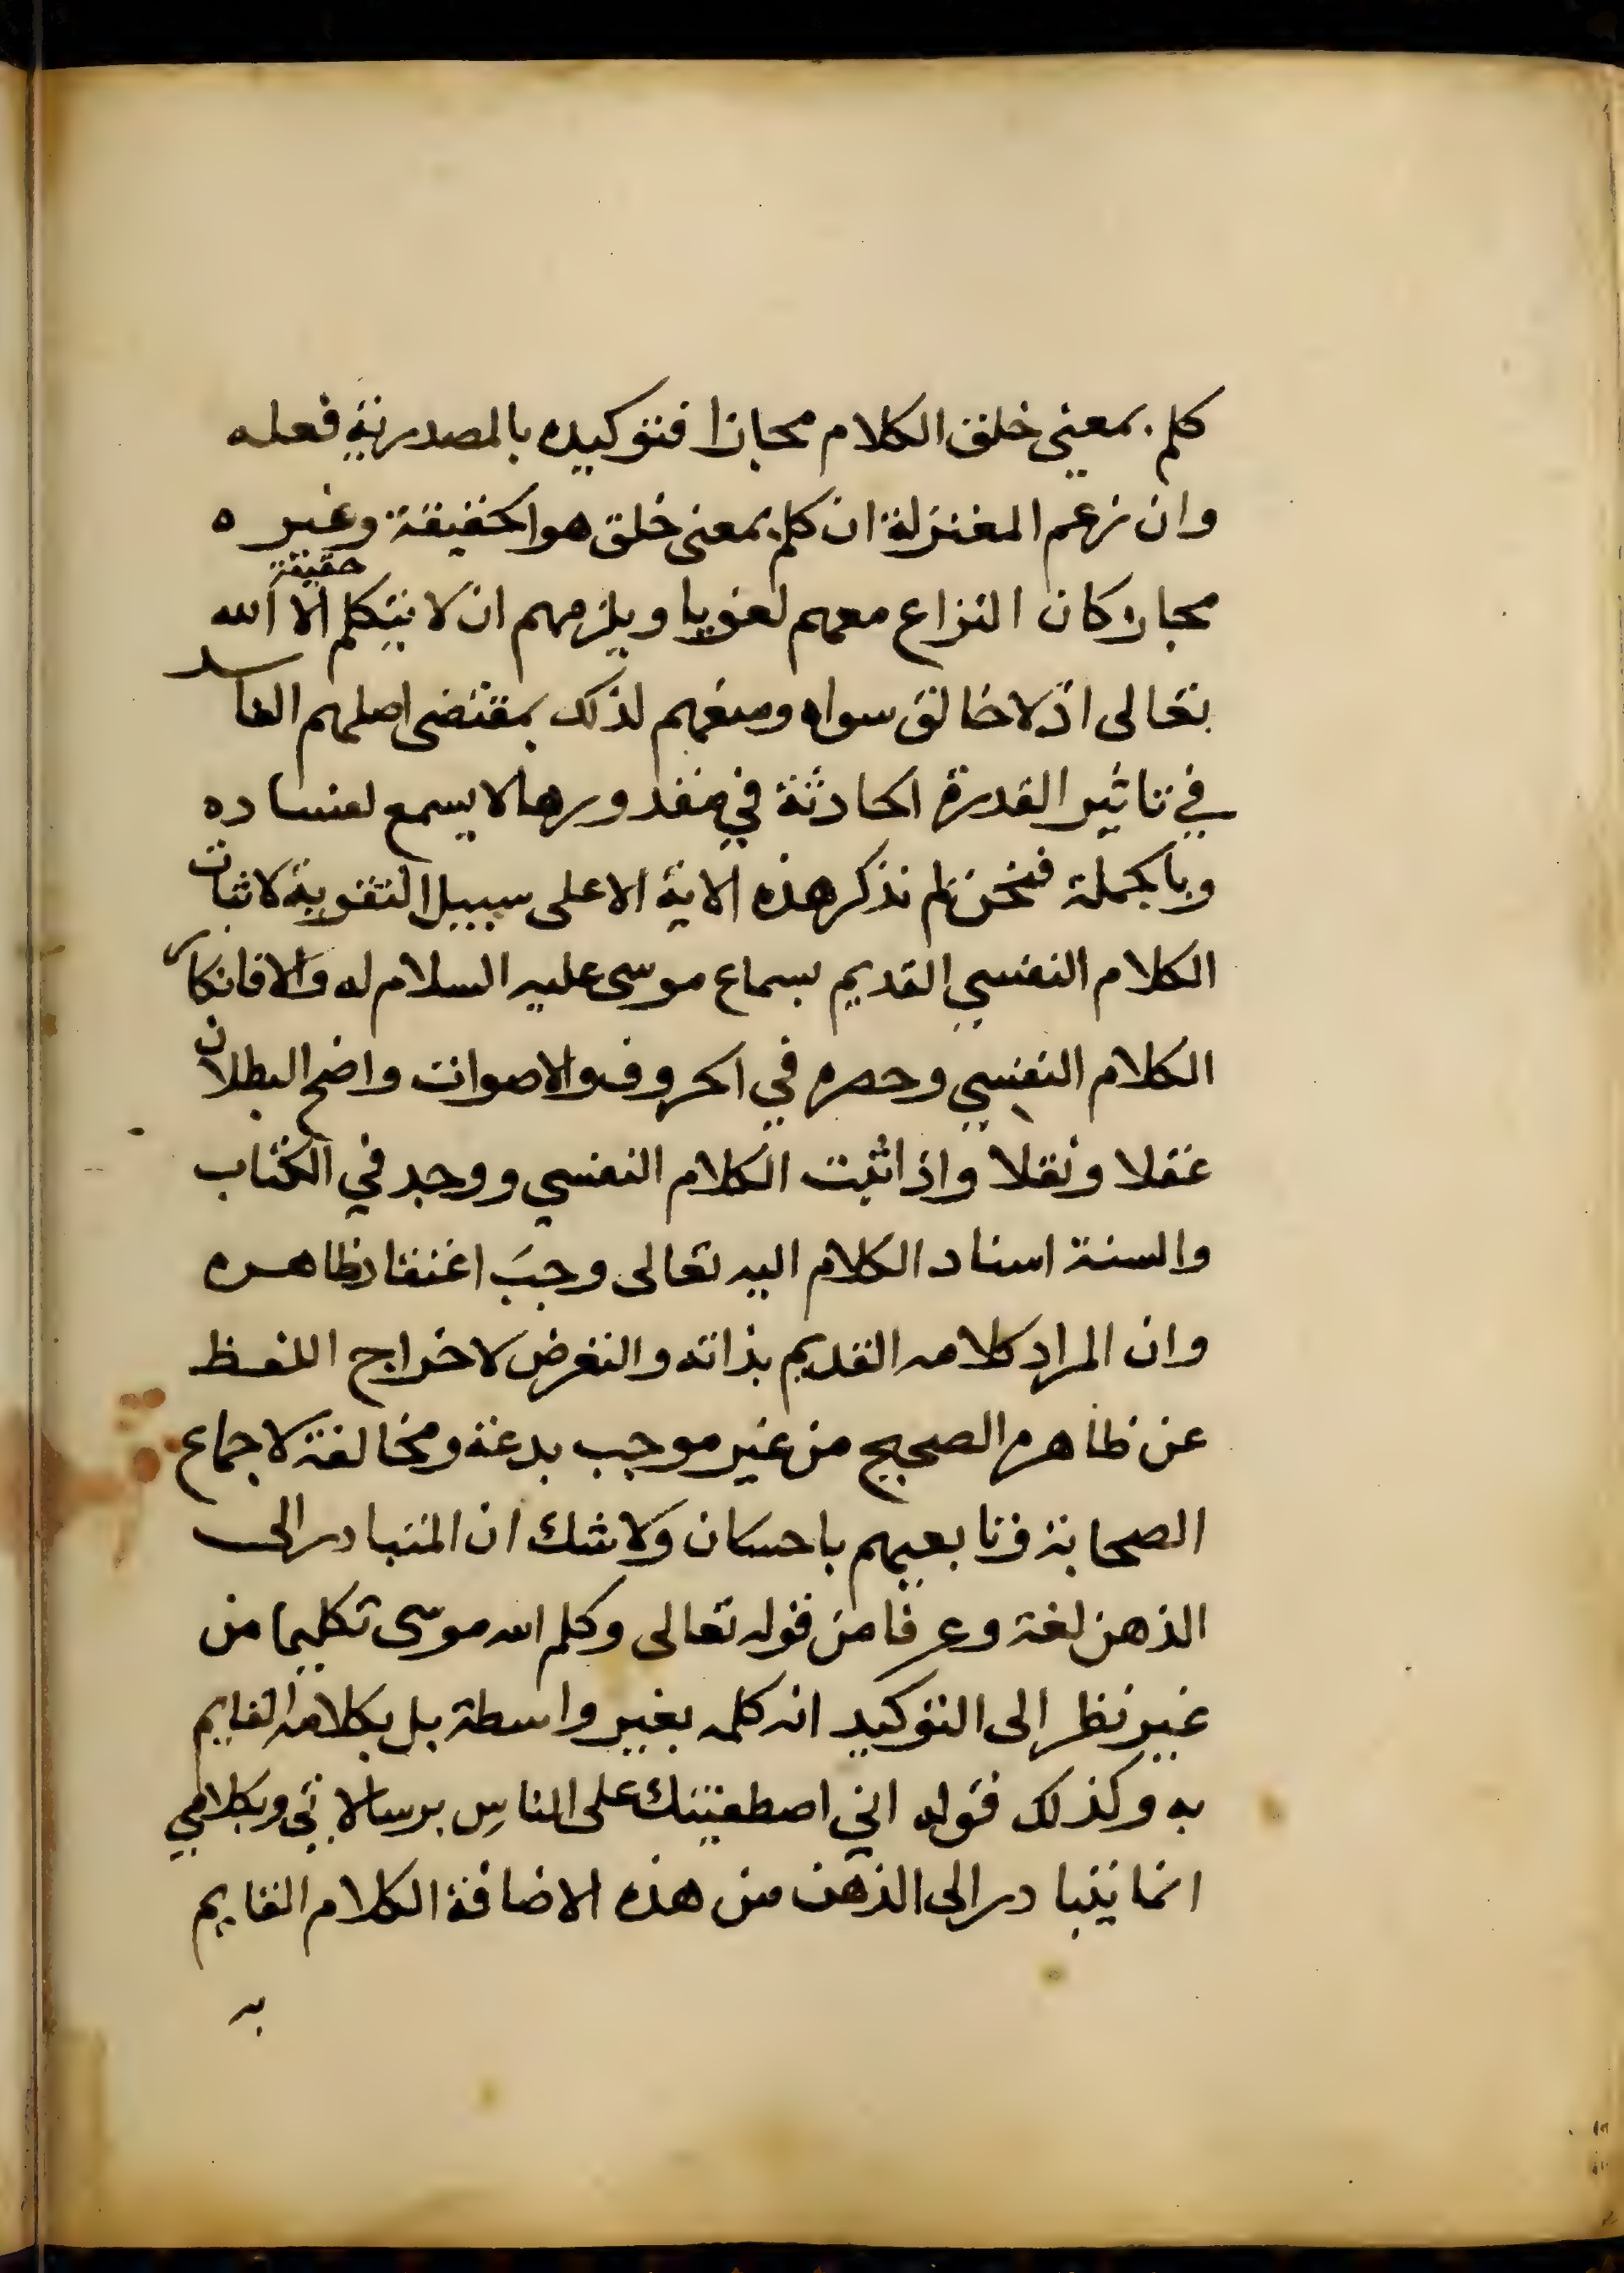 كلم بمعنى خلق الكلام مجازا فتوكيده بالمصدر فعله
وان زعم المعتزلة ان كلم بمعنى خلق هو الحقيقة وغيره
مجاز وكان النزاع معهم لغويا ويلزمهم ان لا يتكلم حقيقة الا الله
تعالى اذ لا خالق سواه ومنعهم لذلك بمقتضى اصلهم الفاسد
في تاثير القدرة الحادثة في مقدورها لا يسمع لفساده
وبالجملة فنحن لم نذكر هذه الاية الا على سبيل التقوية لاثبات
الكلام النفسي القديم بسماع موسى عليه السلام له والا فانكار
الكلام النفسي وحصره في الحروف والاصوات واضح البطلان
عقلا ونقلا واذا ثبت الكلام النفسي ووجد في الكتاب
والسنة اسناد الكلام اليه تعالى وجب اعتقاد ظاهره
وان المراد كلامه القديم بذاته والتعرض لاخراج اللفظ
عن ظاهره الصحيح من غير موجب بدعة ومخالفة لاجماع
الصحابة وتابعيهم باحسان ولا شك ان المتبادر الى
الذهن لغة وعرفا من قوله تعالى وكلم الله موسى تكليما من
غير نظر الى التوكيد انه كلمه بغير واسطة بل بكلامه القايم
به وكذلك قوله اني اصطفيتك على الناس برسالاتي وبكلامي
انما يتبادر الى الذهن من هذه الاضافة الكلام القايم
به